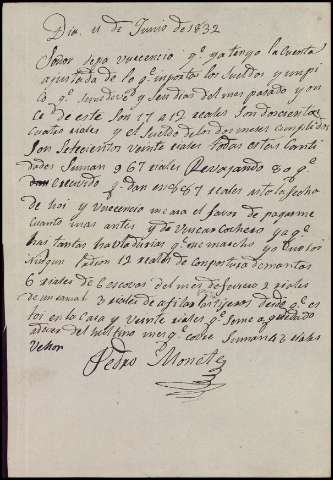 Dia, 11 de Junio de 1832
Señor sepa vuecencia q.e ya tengo la Cuenta
ajustada de lo q.e inportan los Sueldos y un pi
co q.e seme deve y seis dias del mes pasado y on
ce de este son 17 a 12 reales son doscientos
cuatro reales y el Sueldo de los dos meses cumplidos
son Setecientos veinte reales todas estas canti
dades suman 967 reales Revajando 80 q.e
recuerdo q.e dan en 887 reales asta la fecha
de hoi y vuecencia me ara el favor de pagarme
cuanto mas antes y de vuscar Cochero ya q.e
tantas havladurias q.e me marcho yo
ningun Patron 12 reales de conpostura de mantas
6 reales de escovas del mes de fevrero 2 reales
de un 3 reales de afilar las tijeras desde q.e es
toi en la Casa y Veinte reales q.e seme a quedado
del hultimo mes q.e cobre suman 43 reales
Vellon
Pedro Monet